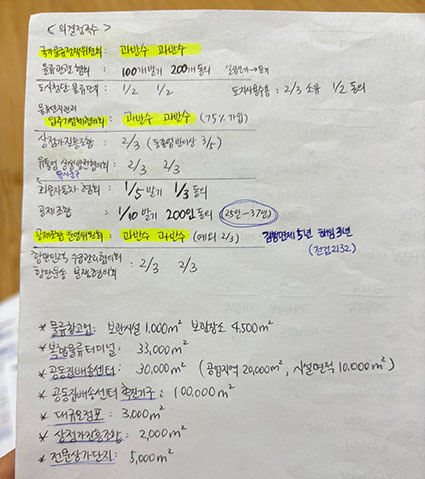 < 의결정족수 >
국가물류정책위원회 : 과반수 과반수
물류관련 협회 : 100개 발기 200개 동의
도시첨단 물류단지 : 1/2 1/2 토지사용수용 : 2/3 소유 1/2 동의
물류단지관리
입주기업체협의회 : 과반수 과반수 (75% 가입)
상점가진흥조합 : 2/3 (동종업반이상 3/5)
유통업 상생발전협의회 : 2/3 2/3
화물자동차 협회 : 1/5 발기 1/3 동의
공제조합 : 1/10 발기 200인 동의 (25인-37인)
공제조합 운영위원회 : 과반수 과반수 (예외 2/3) 집행면제 5년 해임 3년
항만인력 수급관리협의회
항만운송 분쟁협의회 : 2/3 2/3
* 물류창고업 : 보관시설 1,000m² 보관장소 4,500m²
* 복합물류터미널 : 33,000m²
* 공동집배송센터 : 30,000m² (공업지역 20,000m², 시설면적 10,000m²)
* 공동집배송센터 촉진지구 : 100,000m²
* 대규모점포 : 3,000m²
* 상점가진흥조합 : 2,000m²
* 전문상가단지 : 5,000m²